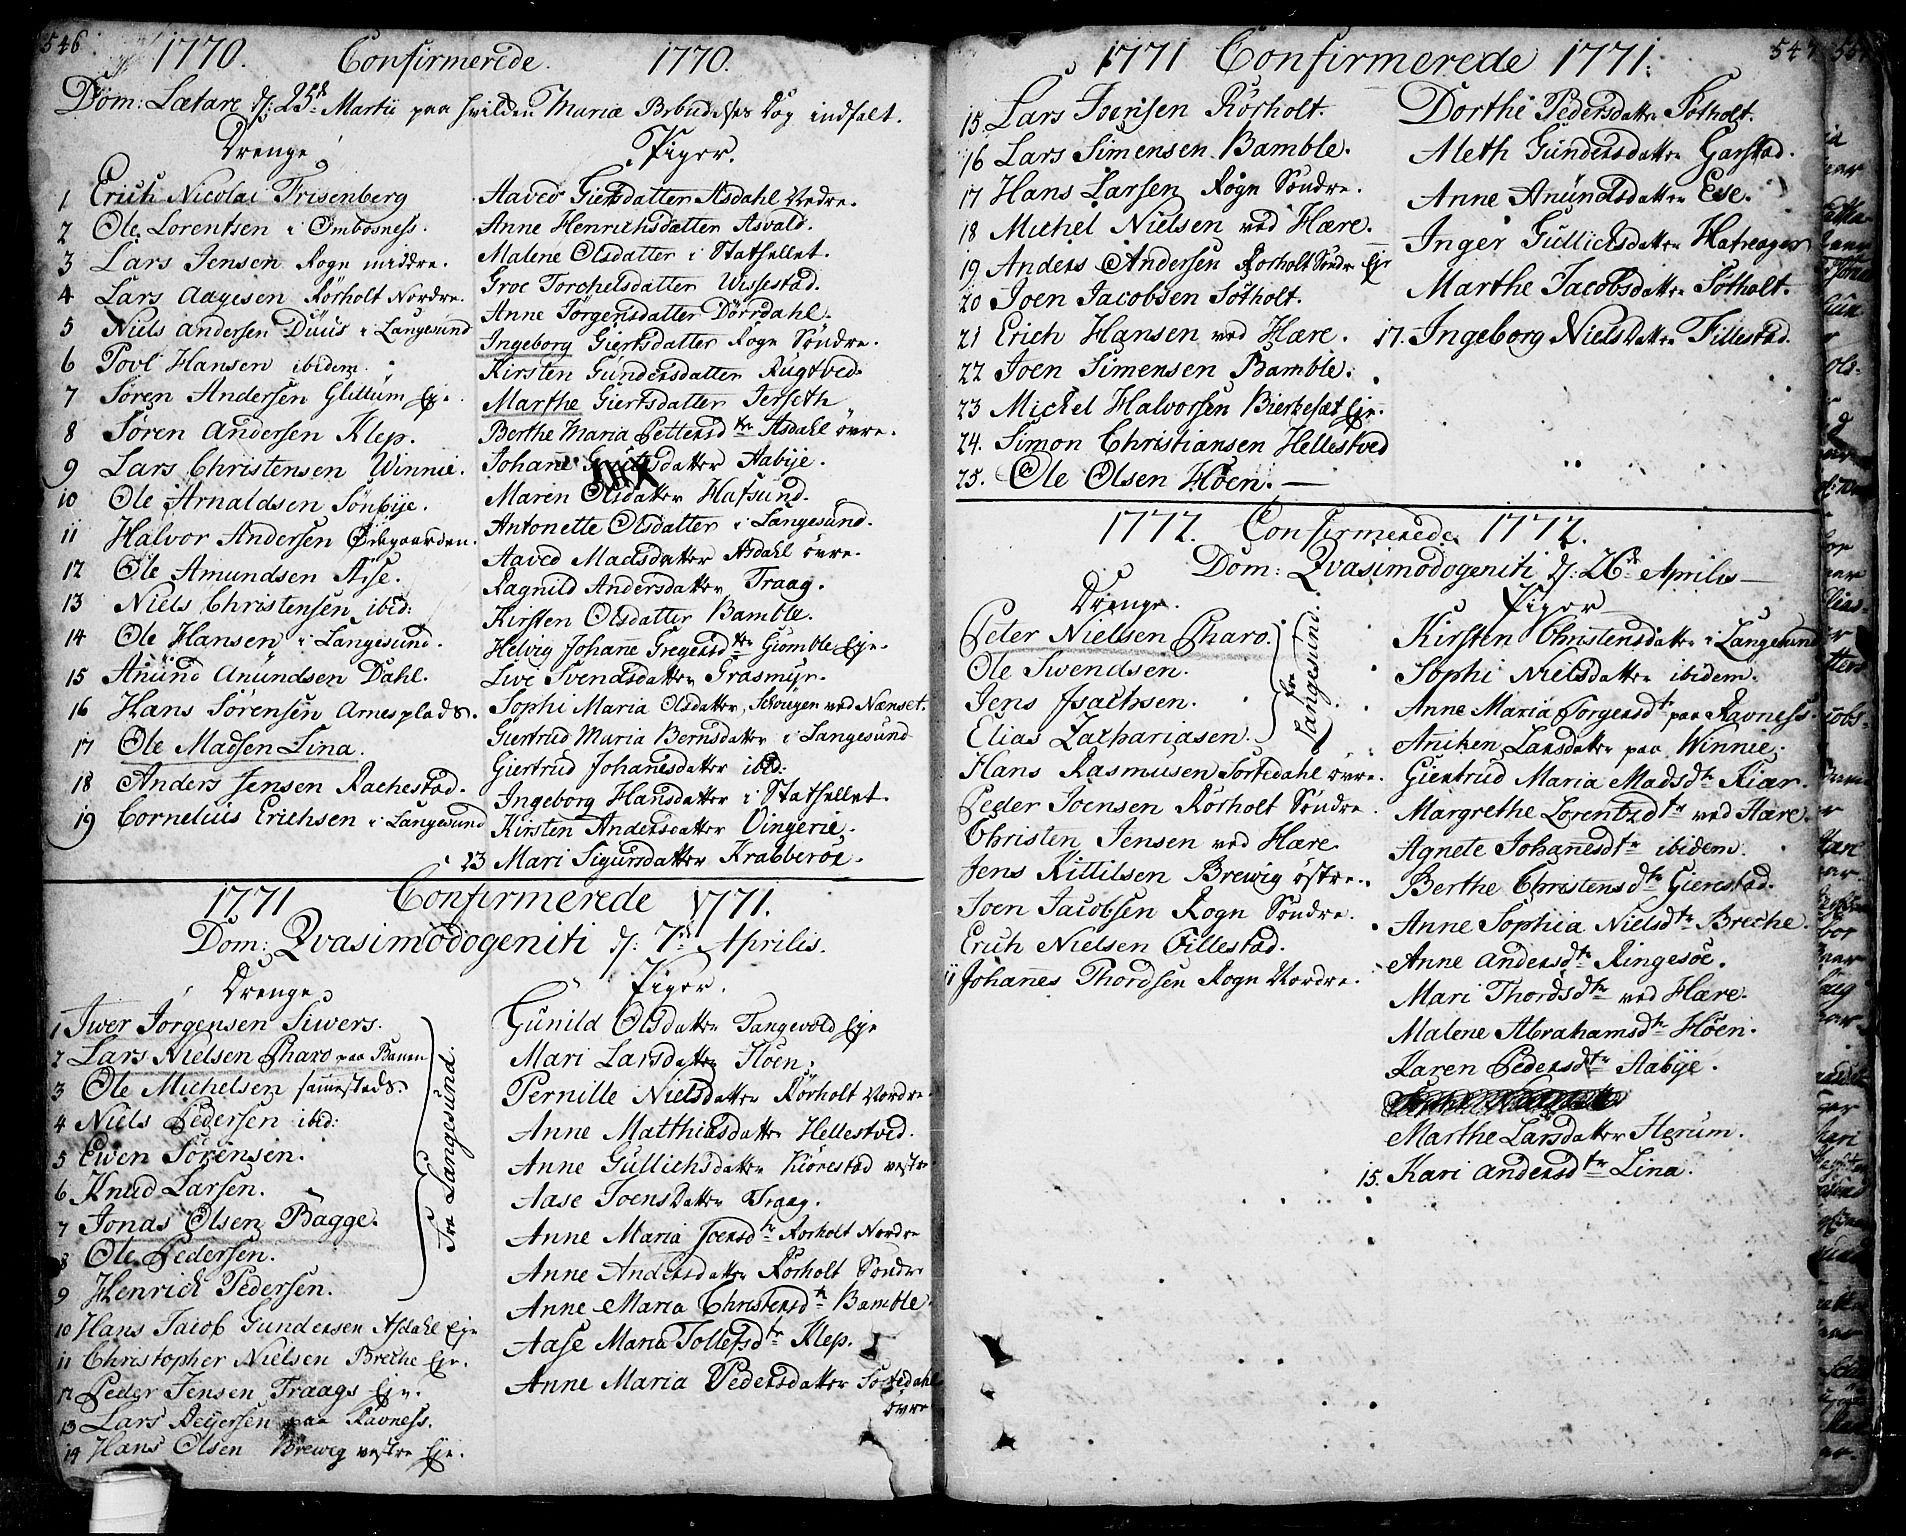 546
1770. Confirmerede. 1770.
Dom: Lætare d: 25de Martii paa hvilken Mariæ Bebudelses Dag indfalt.
Drenge
1 Erich Nicolai Frisenberg
2 Ole Lorentsen i Ombosness.
3 Lars Jensen Rogn middre.
4 Lars Aagesen Rörholt Nordre.
5 Niels Andersen Duus i Langesund
6 Povl Hansen ibidem.
7 Sören Andersen Glittum Eje.
8 Sören Andersen Klep.
9 Lars Christensen Winnie.
10 Ole Arnaldsen Sönbye.
11 Halvor Andersen Ödegaarden.
12 Ole Amundsen Aese.
13 Niels Christensen ibid:
14 Ole Hansen i Langesund.
15 Anund Anundsen Dahl.
16 Hans Sörensen Arnesplads.
17 Ole Madsen Lina.
18 Anders Jensen Rachestad.
19 Cornelius Erichsen i Langesund
Piger.
Aaved Giertsdatter Asdahl Nedre.
Anne Henrichsdatter Asvald.
Malene Olsdatter i Stathellet.
Groe Torchelsdatter Wissestad.
Anne Jörgensdatter Dörrdahl.
Ingeborg Giertsdatter Rogn Söndre.
Kirsten Gundersdatter Rugtved.
Marthe Giertsdatter Jerseth
Berthe Maria Pettersdtr Asdahl övre.
Johane datter Aabye.
Maren Olsdatter Hafsund.
Antonette Olsdatter i Langesund.
Aaved Madsdatter Asdahl övre.
Ragnild Andersdatter Traag.
Kirsten Olsdatter Bamble.
Helvig Johane Gregersdtr Giömble Eje.
Live Svendsdatter Grasmyr.
Sophi Maria Olsdatter, Schougen ved Nænset.
Giertrud Maria Berntsdatter i Langesund
Giertrud Johanesdatter ibid:
Ingeborg Hansdatter i Stathellet.
Kirsten Andersdatter Vingerie.
23 Mari Sigursdatter Krabberöe.
1771 Confirmerede 1771.
Dom: Qvasimodogeniti d: 7de Aprilis.
Drenge
1 Iwer Jörgensen Siwers.
2 Lars Nielsen Pharo paa Banen
3 Ole Michelsen sammesteds.
4 Niels Pedersen ibid:
5 Ewen Sörensen.
6 Knud Larsen.
7 Jonas Olsen Bagge.
8 Ole Pedersen.
9 Henrich Pedersen.
Fra Langesund.
10 Hans Jacob Gundersen Asdahl Eje
11 Christopher Nielsen Breche Eje.
12 Peder Jensen Traags Eje.
13 Lars Reyersen paa Ravness.
14 Hans Olsen Brewig vestre Eje.
Piger.
Gunild Olsdatter Tangevold Eje
Mari Larsdatter Höen.
Pernille Nielsdatter Rörholt Nordre
Anne Matthiasdatter Hellestved.
Anne Gullichsdatter Kiörestad vestre
Aase Joensdatter Traag.
Anne Maria Joensdtr Rorholt Nordre
Anne Andersdatter Rörholt Söndre
Anne Maria Christensdtr Bamble.
Aase Maria Tollefsdtr Klep.
Anne Maria Pedersdatter Sortedahl
övre
547
1771 Confirmerede 1771.
15 Lars Joensen Rörholt.
16 Lars Simensen Bamble.
17 Hans Larsen Rogn Söndre.
18 Michel Nielsen ved Hære.
19 Anders Andersen Rorholt Söndre Eje
20 Joen Jacobsen Sötholt.
21 Erich Hansen ved Hære.
22 Joen Simensen Bamble.
23 Mickel Halvorsen Bierkesæt Eje.
24. Simon Christiansen Hellestved
25. Ole Olsen Höen.
Dorthe Pedersdatter Sötholt.
Aleth Gundersdatter Garstad.
Anne Anundsdatter Ese.
Inger Gullichsdatter Hafreager
Marthe Jacobsdatter Sötholt.
17. Ingeborg Nielsdatter Fillestad.
1772. Confirmerede 1772.
Dom: Qvasimodogeniti d: 26de Aprilis
Drenge.
Peter Nielsen Pharo.
Ole Swendsen.
Jens Isachsen.
Elias Zachariasen.
fra Langesund.
Hans Rasmusen Sortedahl övre.
Peder Joensen Rörholt Söndre
Christen Jensen ved Hære
Jens Kittilsen Brewig östre.
Joen Jacobsen Rogn Söndre.
Erich Nielsen Fillestad.
11 Johannes Thordsen Rogn Nordre.
Piger
Kirsten Christensdatter i Langesund
Sophi Nielsdatter ibidem.
Anne Maria Jorgensdtr paa Ravness.
Aniken Larsdatter paa Winnie.
Giertrud Maria Madsdtr Kiær.
Margrethe Lorentzdtr ved Hære.
Agnete Johannesdtr ibidem.
Berthe Christensdtr Gierestad.
Anne Sophia Nielsdtr Breche.
Anne Andersdtr Ringesöe.
Mari Thordsdtr ved Hære.
Malene Abrahamsdtr Höen.
Karen Pedersdtr Aabye.
Marthe Larsdatter Herum.
15. Kari Andersdtr Lina.